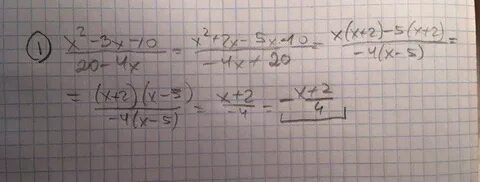 ① (x²-3x-10)/(20-4x) = (x²+2x-5x-10)/(-4x+20) = (x(x+2)-5(x+2))/(-4(x-5)) =
= ((x+2)(x-5))/(-4(x-5)) = (x+2)/(-4) = -(x+2)/4